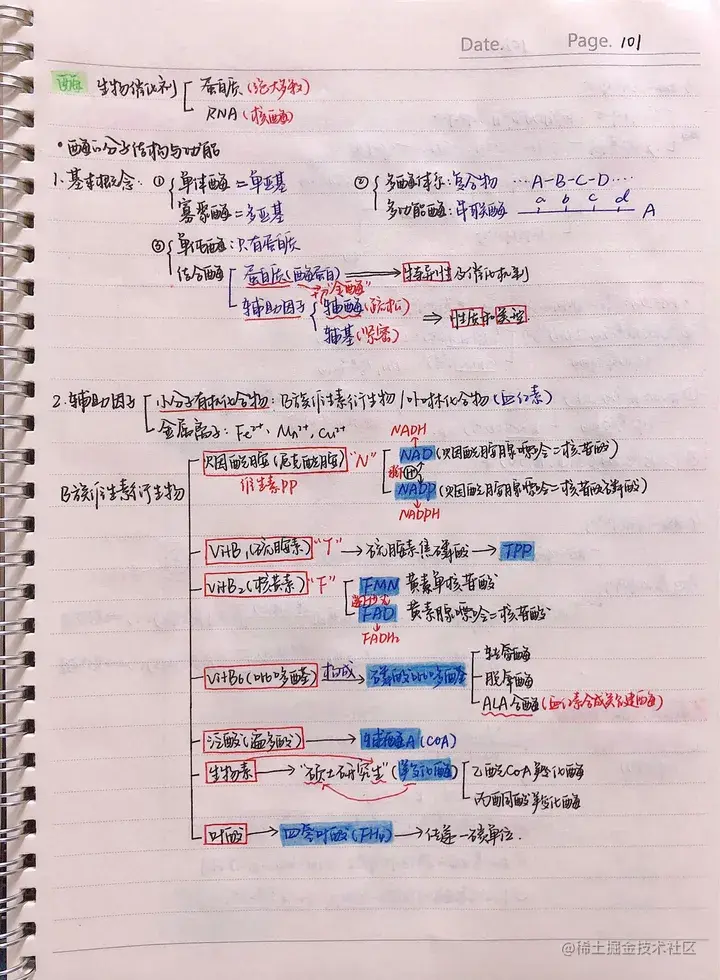 Date. Page. 101
酶 生物催化剂 蛋白质(绝大多数)
RNA(核酶)
·酶的分子结构与功能
1.基本概念: ① 单体酶=单亚基 ② 多酶体系:复合物 ···A-B-C-D····
寡聚酶=多亚基 多功能酶:串联酶 a b c d A
③ 单纯酶:只有蛋白质
结合酶 蛋白质(酶蛋白) ⟹ 特异性及催化机制
"全酶"
辅助因子 辅酶(疏松) ⇒ 性质和类型
辅基(紧密)
2.辅助因子 小分子有机化合物:B族维生素衍生物/卟啉化合物(血红素)
金属离子:Fe²⁺、Mn²⁺、Cu²⁺
NADH
B族维生素衍生物 烟酰胺(尼克酰胺)"N" NAD(烟酰胺腺嘌呤二核苷酸)
维生素PP
NADP(烟酰胺腺嘌呤二核苷酸磷酸)
NADPH
VitB₁(硫胺素)"T"→硫胺素焦磷酸→TPP
VitB₂(核黄素)"F" FMN 黄素单核苷酸
FAD 黄素腺嘌呤二核苷酸
FADH₂
转氨酶
VitB6(吡哆醛) 构成 磷酸吡哆醛 脱羧酶
ALA合酶(血红素合成关键酶)
泛酸(遍多酸)→辅酶A(CoA)
生物素→"硕士研究生"(羧化酶) 乙酰CoA羧化酶
丙酮酸羧化酶
叶酸→四氢叶酸(FH₄)→传递一碳单位.
@稀土掘金技术社区